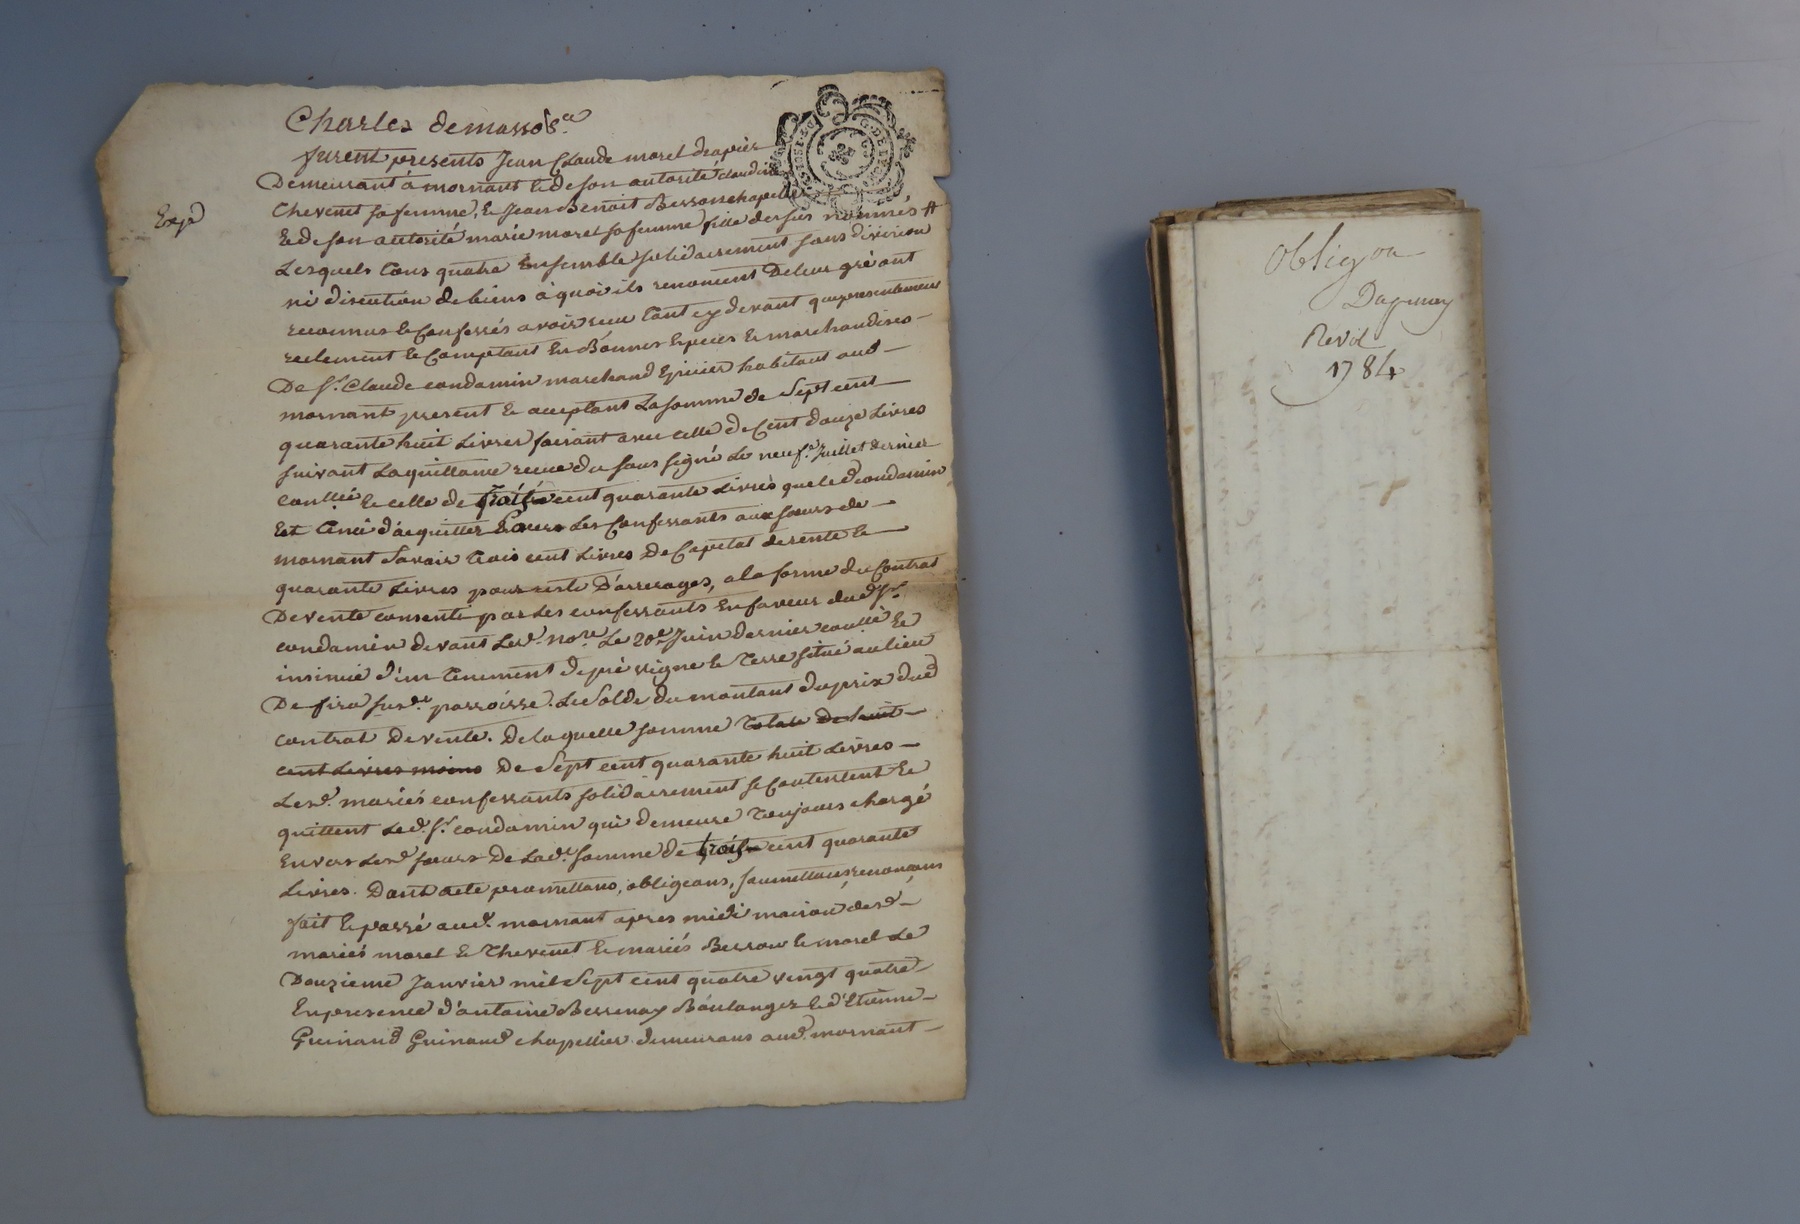 Charles demasso &ca
furent presents Jean Claude morel drapier
Demeurant à mornant & de son autorité claudine
Thevenet sa femme, & Jean Benoit Besson chapellier
& de son autorité marie morel sa femme fille dessus nommés #
Lesquels tous quatre Ensemble solidairement sans division
ni discution de biens à quoi ils renoncent De leur gré ont
reconnus & Confessés avoir recu tant cy devant que presentement
reelement & Comptant En Bonnes Especes & marchandises
De sr. Claude condamin marchand Epicier habitant aud
mornant present & acceptant La somme de Sept cent
quarante huit Livres faisant avec celle de Cent douze Livres
suivant La quittance recue du sous signé Le neuf Juillet dernier
conllée & celle de trois cent quarante Livres que led condamin
Est tenu d'acquitter Pour Les Confessants aux sœurs de
mornant Savoir trois cent Livres De Capital de rente &
quarante Livres pour reste D'arrerages, a la forme du Contrat
De vente consenti par Les confessants En faveur dud sr.
condamin devant Led. nore Le 20e Juin dernier conllé &
insinué d'un tenement de pré vigne & Terre situé au lieu
De fira susde. parroisse. Le Solde du montant du prix dud
contrat De vente. De laquelle somme totale De huit
cent Livres moins De Sept cent quarante huit Livres
Lesd. mariés confessants solidairement se Contentent &
quittent Led. sr. condamin qui demeure toujours chargé
Envers Lesd sœurs De Lade. somme de trois cent quarante
Livres. Dont acte promettans, obligeans, soumettans, renonçans
fait & passé aud. mornant apres midi maison desd
mariés morel & Thevenet & mariés Besson & morel Le
Douzieme Janvier mil Sept cent quatre vingt quatre
En presence d'antoine Bessenay Boulanger & d'Etienne
Guinand Guinand chapellier demeurans aud. mornant
Exp
Obligon
1784